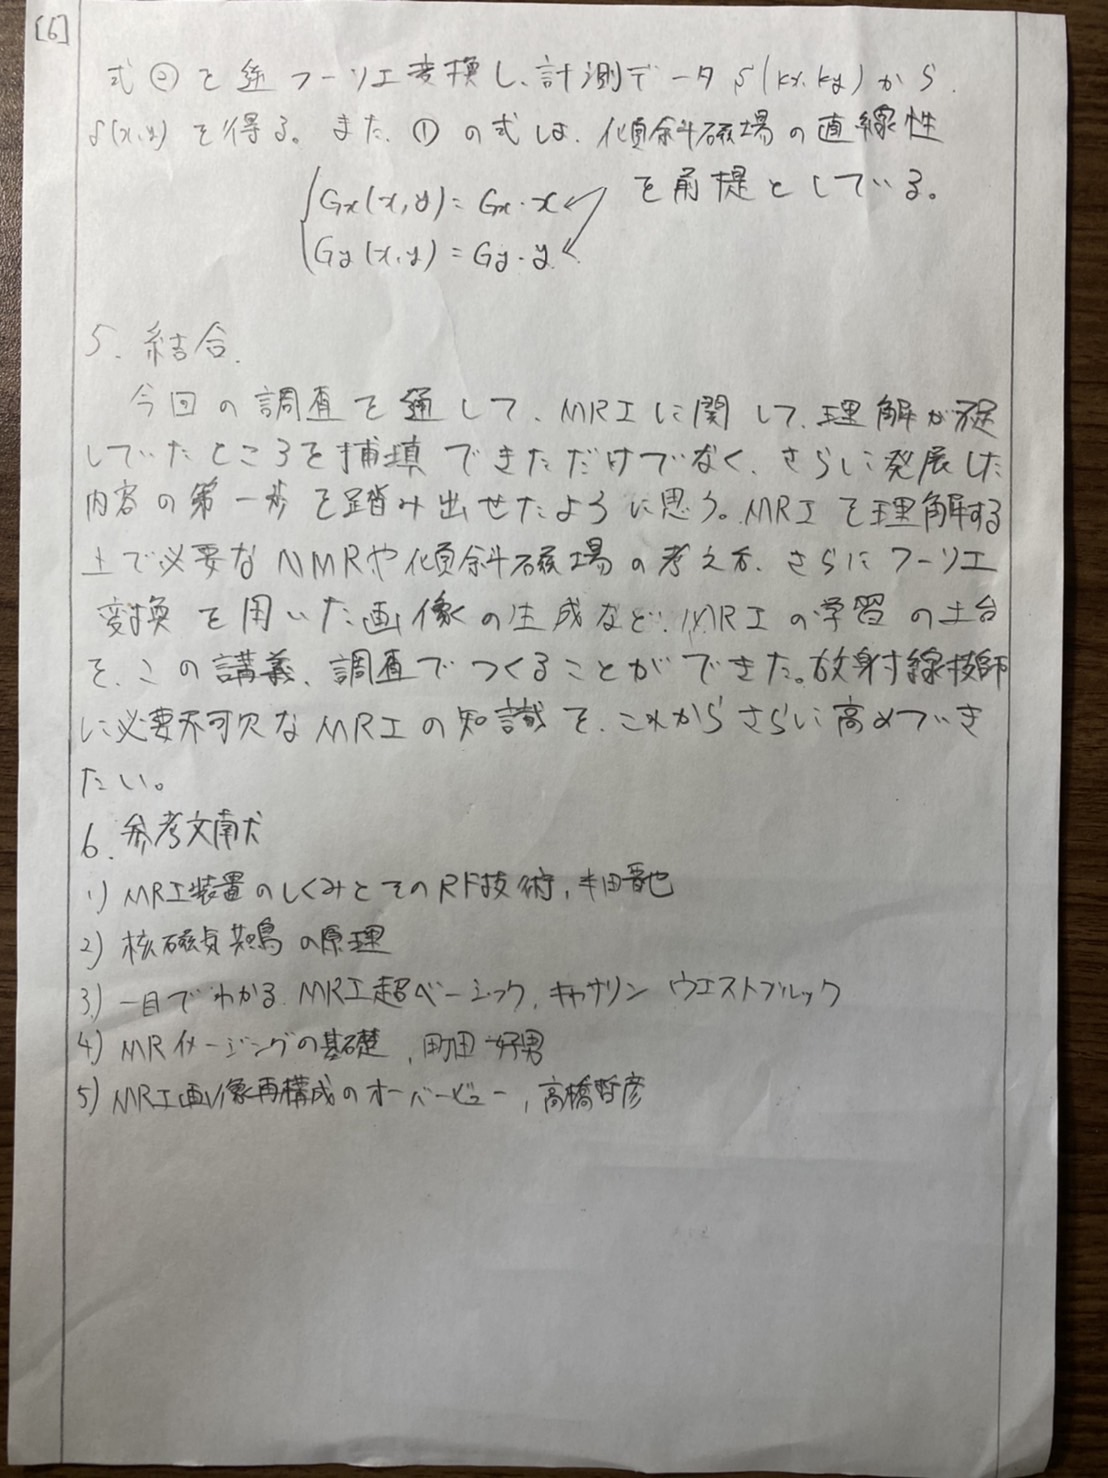 [6]
式②を逆フーリエ変換し、計測データS(kx,ky)から
ρ(x,y)を得る。また、①の式は、傾斜磁場の直線性
Gx(x,y)=Gx・x を前提としている。
Gy(x,y)=Gy・y
5. 結合.
今回の調査を通して、MRIに関して、理解が不足
していたところを補填できただけでなく、さらに発展した
内容の第一歩を踏み出せたように思う。MRIを理解する
上で必要なNMRや傾斜磁場の考え方、さらにフーリエ
変換を用いた画像の生成など、MRIの学習の土台
を、この講義、調査でつくることができた。放射線技師
に必要不可欠なMRIの知識を、これからさらに高めていき
たい。
6. 参考文献
1) MRI装置のしくみとそのRF技術,
2) 核磁気共鳴の原理
3) 一目でわかるMRI超ベーシック, キャサリン ウエストブルック
4) MRイメージングの基礎, 町田好男
5) MRI画像再構成のオーバービュー, 高橋哲彦